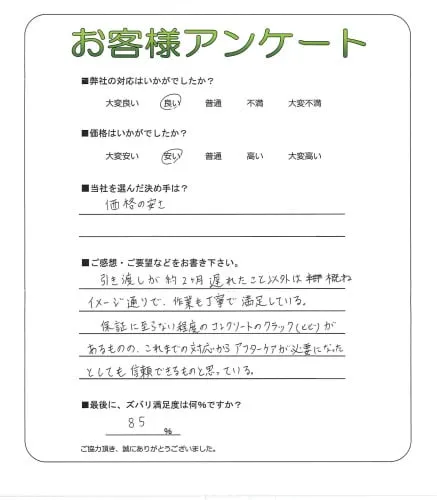 お客様アンケート
■弊社の対応はいかがでしたか？
大変良い 良い 普通 不満 大変不満
■価格はいかがでしたか？
大変安い 安い 普通 高い 大変高い
■当社を選んだ決め手は？
価格の安さ
■ご感想・ご要望などをお書き下さい。
引き渡しが約2ヶ月遅れたこと以外は概ね
イメージ通りで、作業も丁寧で満足している。
保証に至らない程度のコンクリートのクラック(ヒビ)が
あるものの、これまでの対応からアフターケアが必要になった
としても信頼できるものと思っている。
■最後に、ズバリ満足度は何％ですか？
85 %
ご協力頂き、誠にありがとうございました。